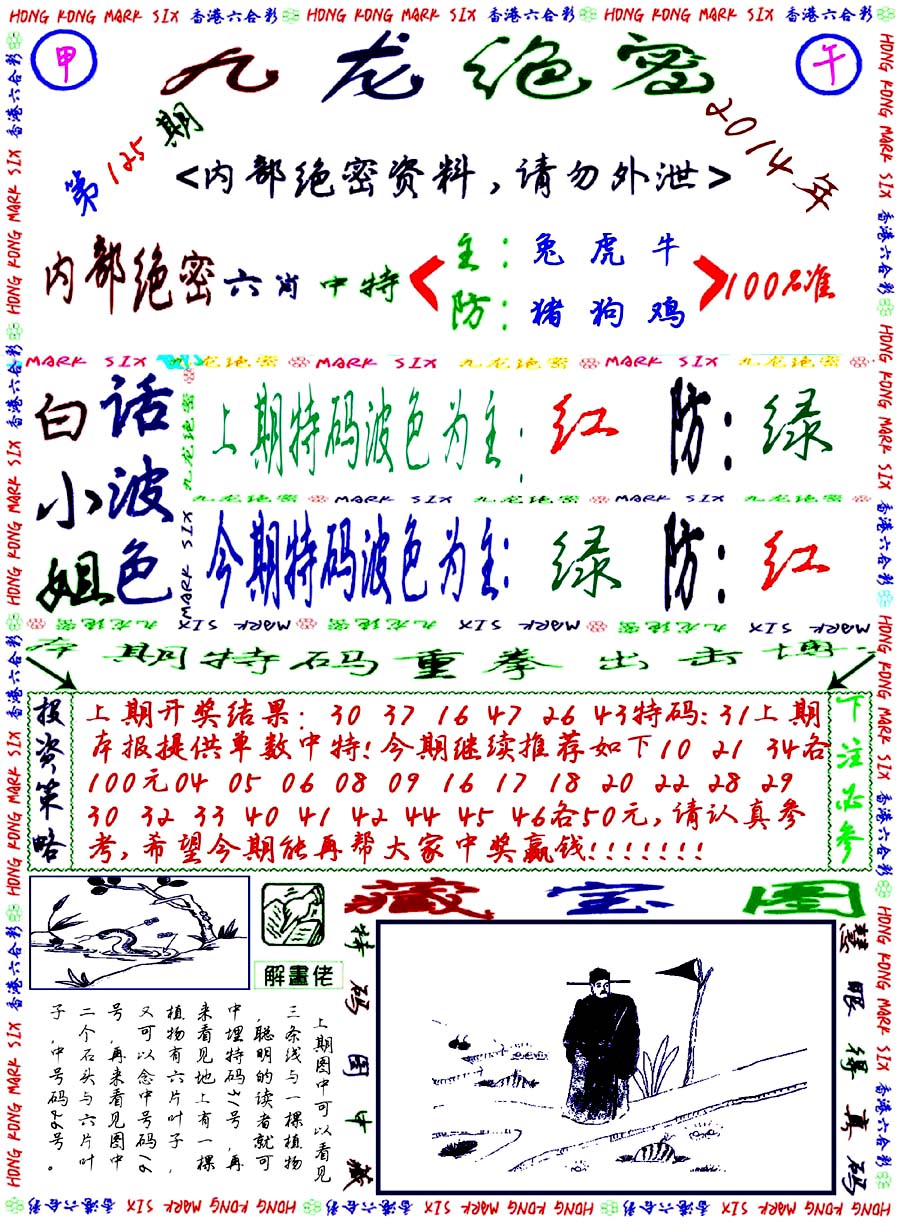 HONG KONG MARK SIX 香港六合彩 HONG KONG MARK SIX 香港六合彩 HONG KONG MARK SIX 香港六合彩
甲
九龙绝密
午
第125期
2014年
<内部绝密资料,请勿外泄>
内部绝密六肖中特
主:兔虎牛
防:猪狗鸡
100%准
MARK SIX 九龙绝密 MARK SIX 九龙绝密 MARK SIX 九龙绝密
白话小波姐色
上期特码波色为主:红 防:绿
九龙绝密 MARK SIX 九龙绝密 MARK SIX 九龙绝密
今期特码波色为主:绿 防:红
本期特码重拳出击博
投资策略
上期开奖结果: 30 37 16 47 26 43特码:31上期
本报提供单数中特!今期继续推荐如下10 21 34各
100元04 05 06 08 09 16 17 18 20 22 28 29
30 32 33 40 41 42 44 45 46各50元,请认真参
考,希望今期能再帮大家中奖赢钱!!!!!!!
下注必参
藏宝图
解畫佬
特码图中藏
慧眼得真码
上期图中可以看见
三条线与一棵植物
,聪明的读者就可
中埋特码31号,再
来看见地上有一棵
植物有六片叶子,
又可以念中号码16
号,再来看见图中
二个石头与六片叶
子,中号码26号。